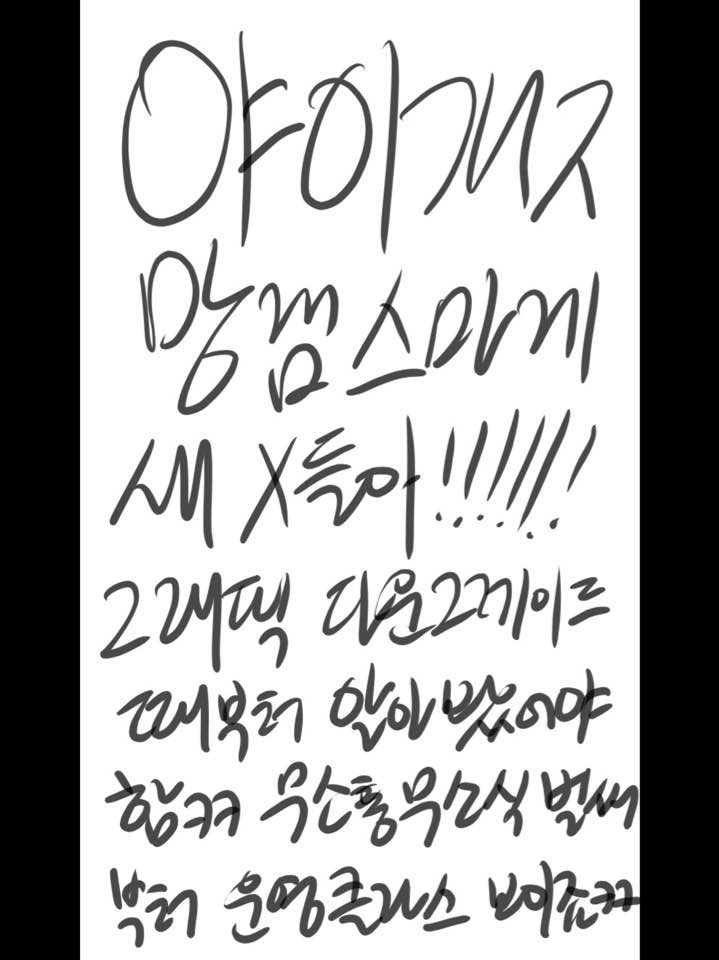 야이개ㅈ
망겜 스마게
새X들아!!!!!!
그래픽 다운그레이드
때부터 알아봤어야
함ㅋㅋ 무소통무소식 벌써
부터 운영클라스 보이죠ㅋㅋ